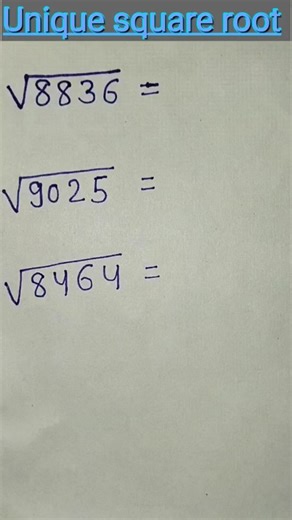 Unique square root
√8836 =
√9025 =
√8464 =